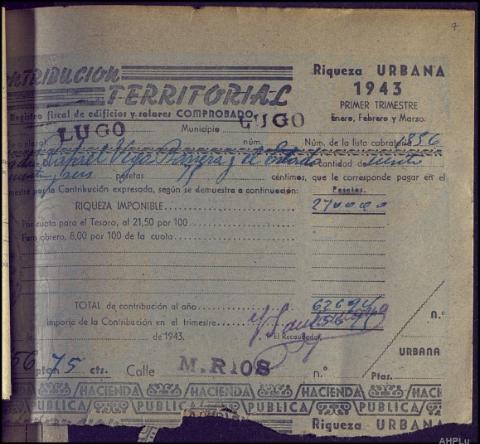 7
NTRIBUCION
TERRITORIAL
Registro fiscal de edificios y solares COMPROBADO
Riqueza URBANA
1943
PRIMER TRIMESTRE
Enero, Febrero y Marzo.
LUGO Municipio LUGO
núm. Núm. de la lista cobratoria 1856
Rafael Vega Barrera y el Estado cantidad
seis pesetas céntimos, que le corresponde pagar en el
mestre por la Contribución expresada, según se demuestra a continuación:
Pesetas.
RIQUEZA IMPONIBLE 270000
Por cuota para el Tesoro, al 21,50 por 100
Paro obrero, 8,00 por 100 de la cuota
TOTAL de contribución al año 62694
Importe de la Contribución en el trimestre
de 1943. El Recaudador,
n.º
URBANA
56 ptas. 75 cts. Calle M. RIOS n.º Ptas.
HACIENDA HACIENDA HACIENDA HACIENDA
PUBLICA PUBLICA PUBLICA PUBLICA
Riqueza URBANA
AHPLu